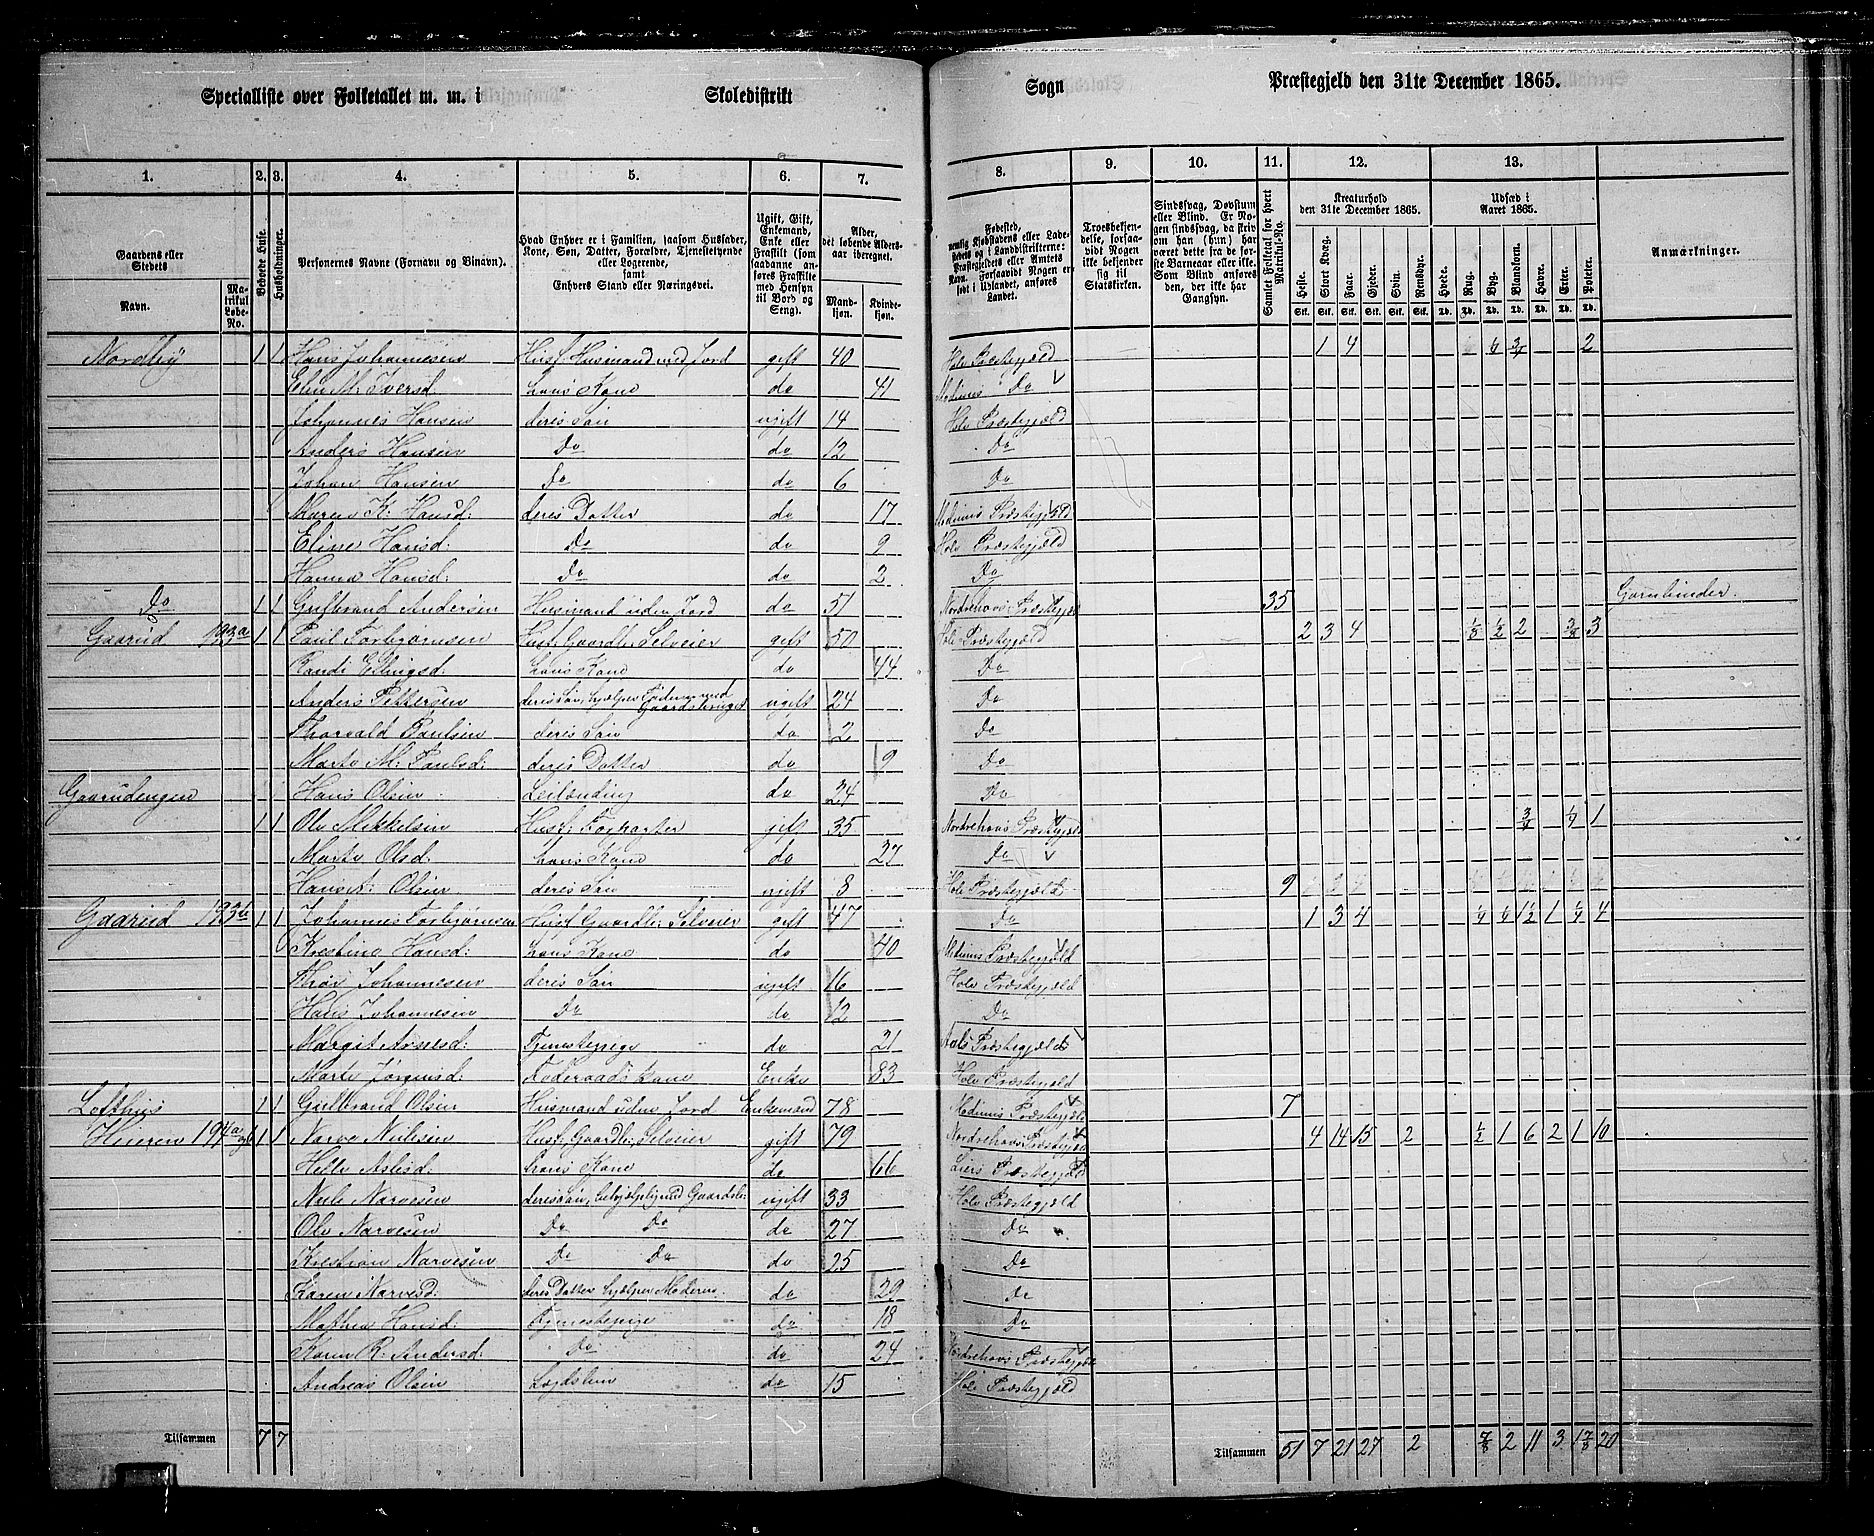 Specialliste over Folketallet m. m. i Skoledistrikt Sogn Præstegjeld den 31te December 1865.
1. 2. 3. 4. 5. 6. 7. 8. 9. 10. 11. 12. 13.
Gaardens eller Stedets
Navn. Matrikul Løbe-No.
Beboede Huse.
Husholdninger.
Personernes Navne (Fornavn og Binavn).
Hvad Enhver er i Familien, saasom Husfader, Kone, Søn, Datter, Forældre, Tjenestetyende eller Logerende,
samt
Enhvers Stand eller Næringsvei.
Ugift, Gift, Enkemand, Enke eller Fraskilt (som saadanne anføres Fraskilte med Hensyn til Bord og Seng).
Alder, det løbende Aldersaar iberegnet.
Mandkjøn. Kvindekjøn.
Fødested, nemlig Kjøbstadens eller Ladestedets og i Landdistrikterne: Præstegjeldets eller Amtets Navn. Forsaavidt Nogen er født i Udlandet, anføres Landet.
Troesbekjendelse, forsaavidt Nogen ikke bekjender sig til Statskirken.
Sindssvag, Døvstum eller Blind. Er Nogen sindssvag, da skriv om han (hun) har været dette fra de første Barneaar eller ikke. Som Blind anføres den, der ikke har Gangsyn.
Samlet Folketal for hvert Matrikul-No.
Kreaturhold den 31te December 1865.
Heste. Stort Kvæg. Faar. Gjeder. Sviin. Rensdyr.
Udsæd i Aaret 1865.
Hvede. Rug. Byg. Blandkorn. Havre. Erter. Poteter.
Anmærkninger.
Nordby 1 1 Hans Johannesen Husf. Husmand med Jord gift 40 Hole Præstegjæld 1 4 1/4 3/4 2
Elen M. Iversd. hans Kone do 41 Modums Do
Johannes Hansen deres Søn ugift 14 Hole Præstegjæld
Anders Hansen Do do 12 Do
Johan Hansen Do do 6 Do
Maren K. Hansd: deres Datter do 17 Modums Præstegjæld
Eline Hansd: Do do 9 Hole Præstegjæld
Hanna Hansd: Do do 2 Do
Do 1 1 Gulbrand Andersen Husmand uden Jord 51 Nordrehovs Præstegjæld 35 Garnbinder.
Gaarud 193a 1 1 Paul Torbjørnsen Husf. Gaardb. Selveier gift 50 Hole Præstegjæld 2 3 4 1/8 1/2 2 3/8 3
Randi Ellingsd. hans Kone do 44 Do
Anders Pettersen deres Søn, hjælper Faderen med Gaardsbruget ugift 24 Do
Thorvald Paulsen deres Søn do 2 Do
Marte M. Paulsd: deres Datter do 9 Do
Gaarudengen Hans Olsen Leilænding do 24 Do
1 1 Ole Mekkelsen Husf: Forparter gift 35 Nordrehovs Præstegjæld 3/4 1/4 1
Marte Olsd. hans Kone do 27 Do
Olsen deres Søn ugift 3 Hole Præstegjæld 9
Gaarud 193b 1 1 Johannes Torbjørnsen Husf. Gaardb. Selveier gift 47 Do 1 3 4 1/4 1/4 1 1/2 1 1/4 4
Kristine Hansd: hans Kone do 40 Modums Præstegjæld
Johannesen deres Søn ugift 16 Hole Præstegjæld
Hans Johannesen Do do 12 Do
Margit Arnesd: Tjenestepige do 21 Aals Præstegjæld
Marte Jørgensd: Føderaadskone Enke 83 Hole Præstegjæld
Lofthus 1 1 Gulbrand Olsen Husmand uden Jord Enkemand 78 Modums Præstegjæld 7
194a 1 1 Narve Nielsen Husf. Gaardb. Selveier gift 79 Nordrehovs Præstegjæld 4 14 15 2 1/2 1 6 2 1 10
Helle Aslesd. hans Kone do 66 Liers Præstegjæld
Niels Narvesen deres Søn, behjælpelig med Gaardsbr: ugift 33 Hole Præstegjæld
Ole Narvesen Do Do do 27 Do
Kristian Narvesen Do Do do 25 Do
Karen Narvesd: deres Datter hjælper Moderen do 29 do
Mathea Hansd: Tjenestepige do 18 Do
Karen R. Andersd. Do do 24 Nordrehovs Præstegjæld
Andreas Olsen Lægdslem do 15 Hole Præstegjæld
Tilsammen 7 7 Tilsammen 51 7 21 27 2 7/8 2 11 3 1 7/8 20